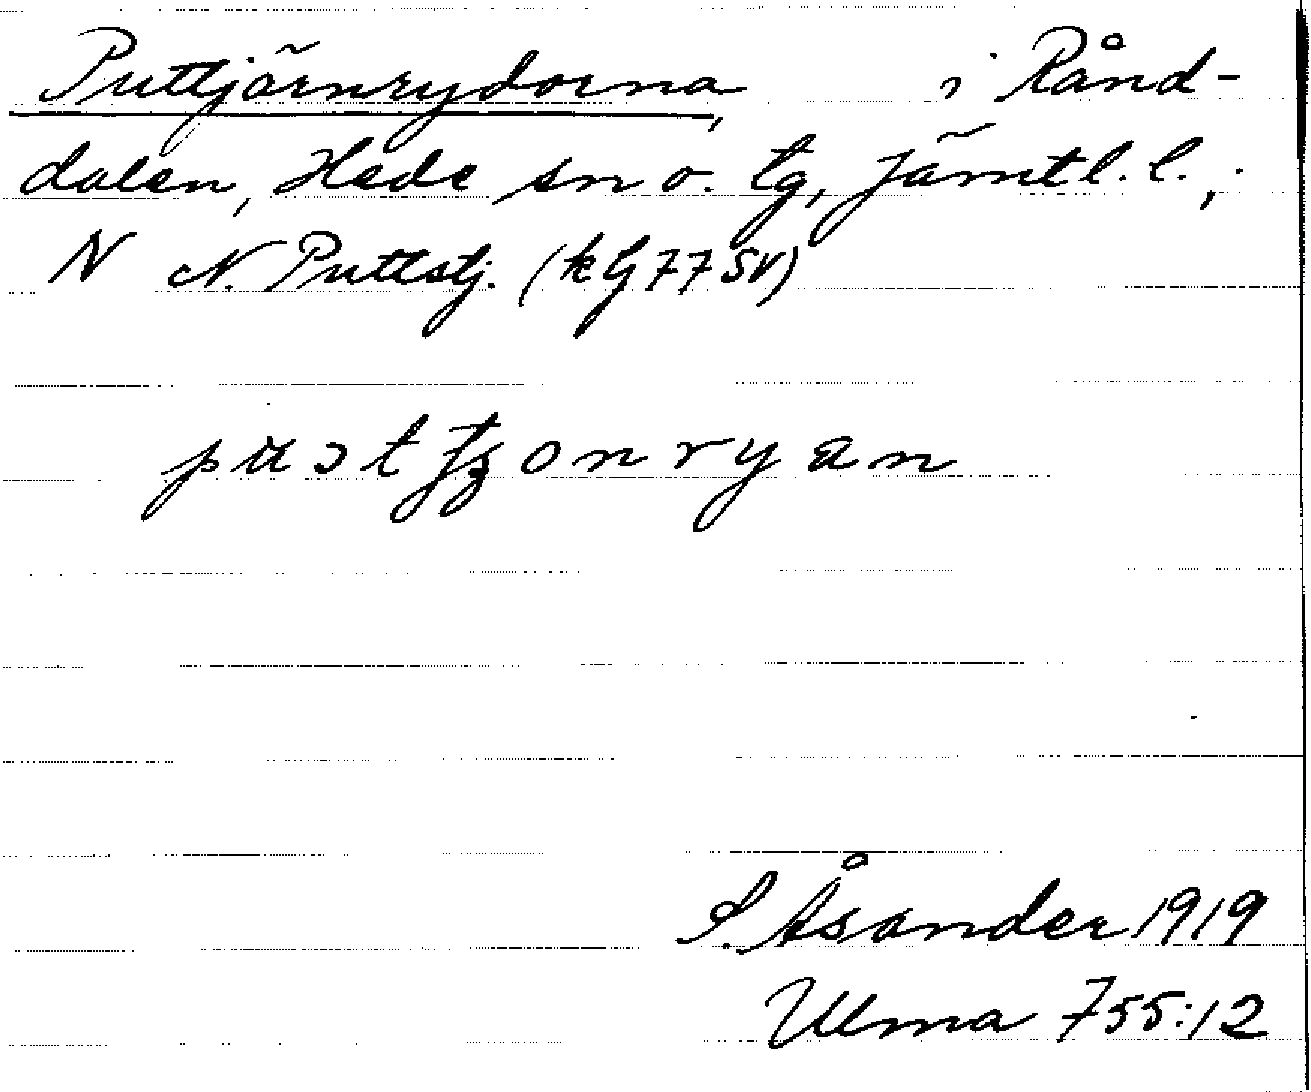 Puttjärnrydorna, i Rånd-
dalen, Hede sn o. tg, Jämtl. l.,
N N. Puttstj. (kg 77 SV)
S. Åsander 1919
Ulma 755:12